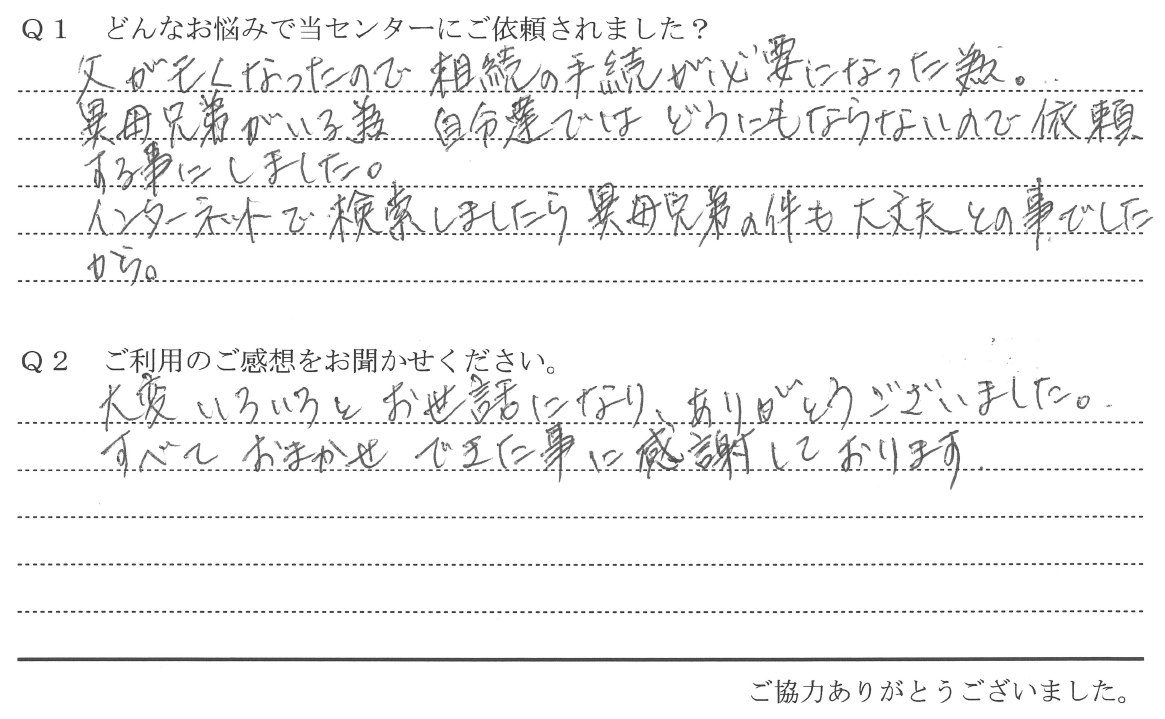 Q1 どんなお悩みで当センターにご依頼されました？
父が亡くなったので 相続の手続が必要になった為。
異母兄弟がいる為 自分達では どうにもならないので 依頼
する事にしました。
インターネットで 検索しましたら 異母兄弟の件も 大丈夫 との事でした
から。
Q2 ご利用のご感想をお聞かせください。
大変 いろいろと お世話になり、ありがとうございました。
すべて おまかせ できた事に 感謝しております
ご協力ありがとうございました。